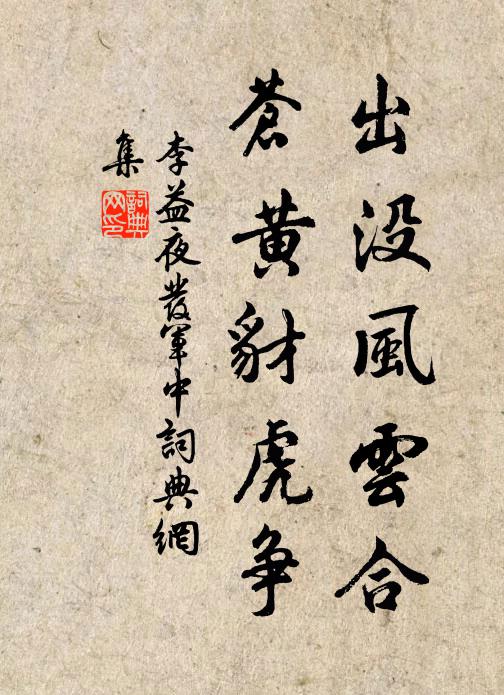 出没風雲合
蒼黃豺虎爭
李益夜發軍中詞典網
集
詞典
网印